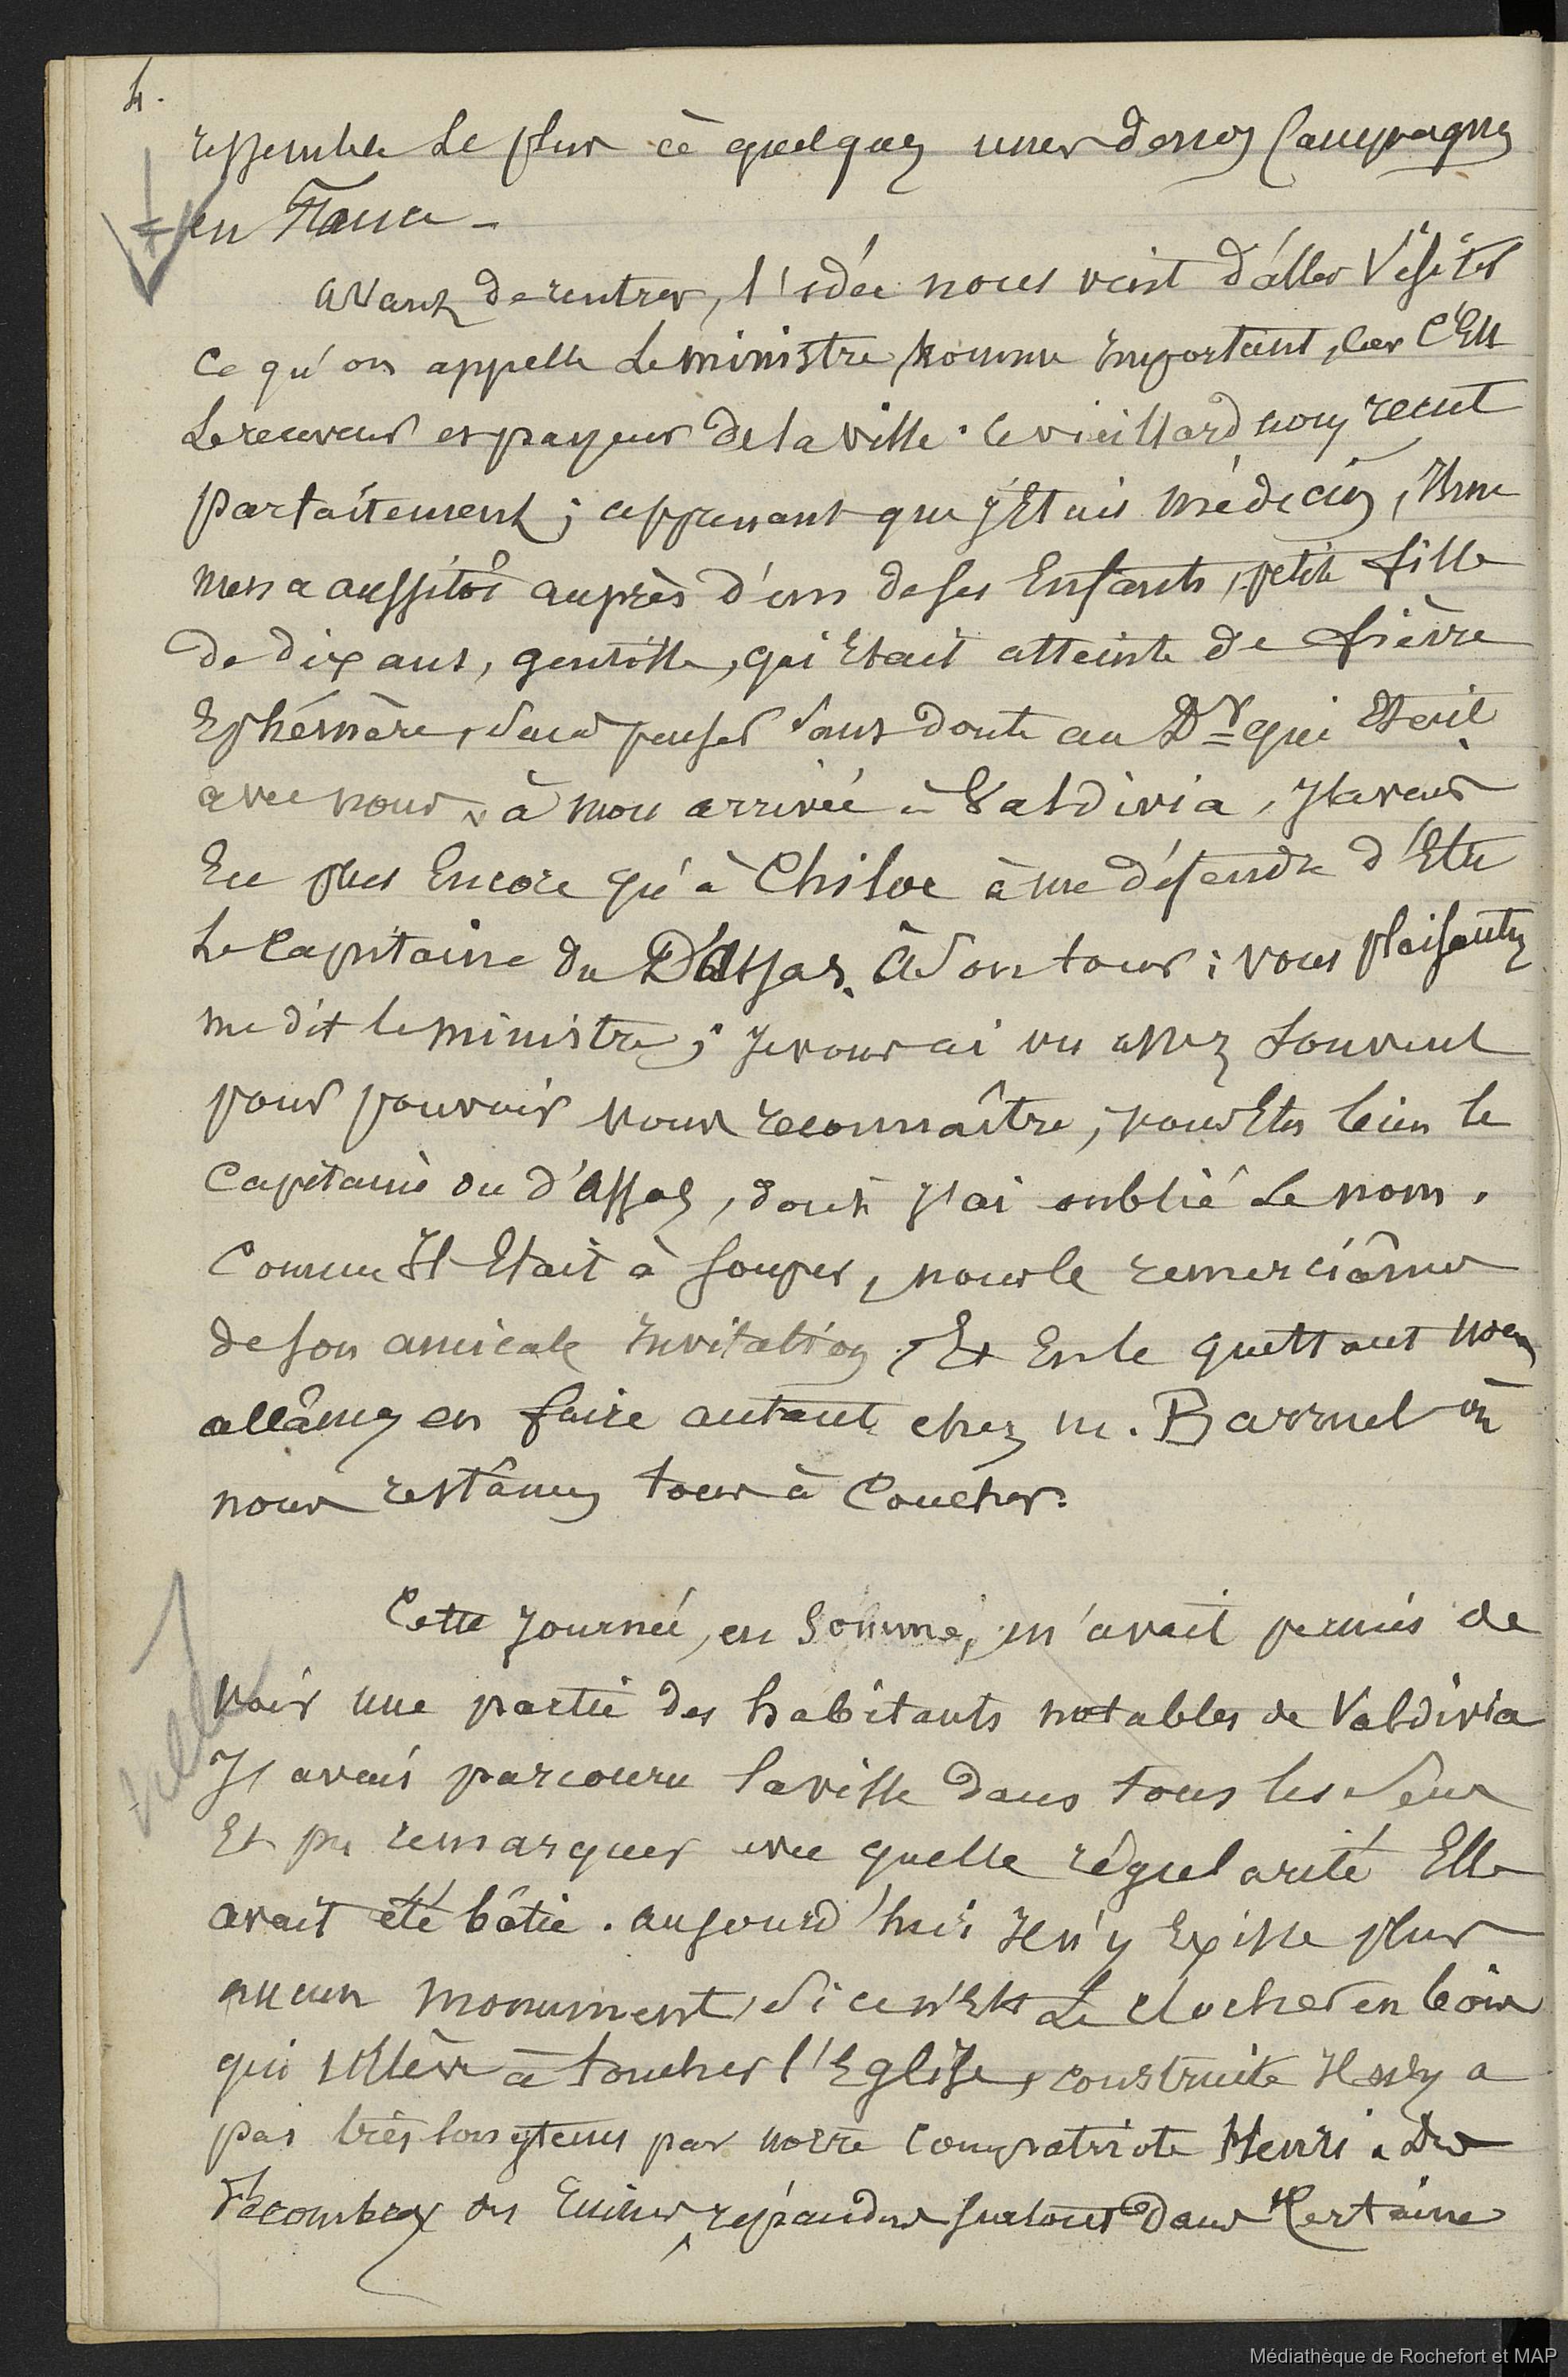 4.
ressemble le plus à quelques unes de nos Campagnes
en France -
Avant de rentrer, l'idée nous vint d'aller Visiter
Ce qu'on appelle Le ministre, homme Important, car C'Est
Le receveur et payeur de la ville. Ce vieillard nous reçut
parfaitement ; apprenant que j'Etais médecin, Il me
mena aussitôt auprès d'un de ses Enfants, petite fille
de dix ans, gentille, qui Etait atteinte de fièvre
Ephémère, sans penser sans doute au Dr qui Etait
avec nous, à mon arrivée à Valdivia, J'avais
Eu plus Encore qu'à Chiloe à me défendre d'Etre
Le Capitaine du D'Assas. à son tour : vous plaisantez
me dit le ministre ; Je vous ai vu assez souvent
pour pouvoir vous reconnaître, vous Etes bien le
Capitaine du d'Assas, dont J'ai oublié Le nom.
Comme Il Etait à souper, nous le remerciâmes
de son amicale Invitation, Et En le quittant nous
allâmes en faire autant chez m. Barruel où
nous restâmes tous à Coucher.
Cette Journée, en Somme, m'avait permis de
voir une partie des habitants notables de Valdivia
J'avais parcouru la ville dans tous les sens
Et pu remarquer avec quelle régularité Elle
avait été bâtie. aujourd'hui Il n'y Existe plus
aucun monument, si ce n'Est Le clocher en bois
qui s'élève à toucher l'Eglise, construite Il n'y a
pas très longtems par notre Compatriote Henri. Des
décombres ou ruines, répandus surtout dans Certaine
ville